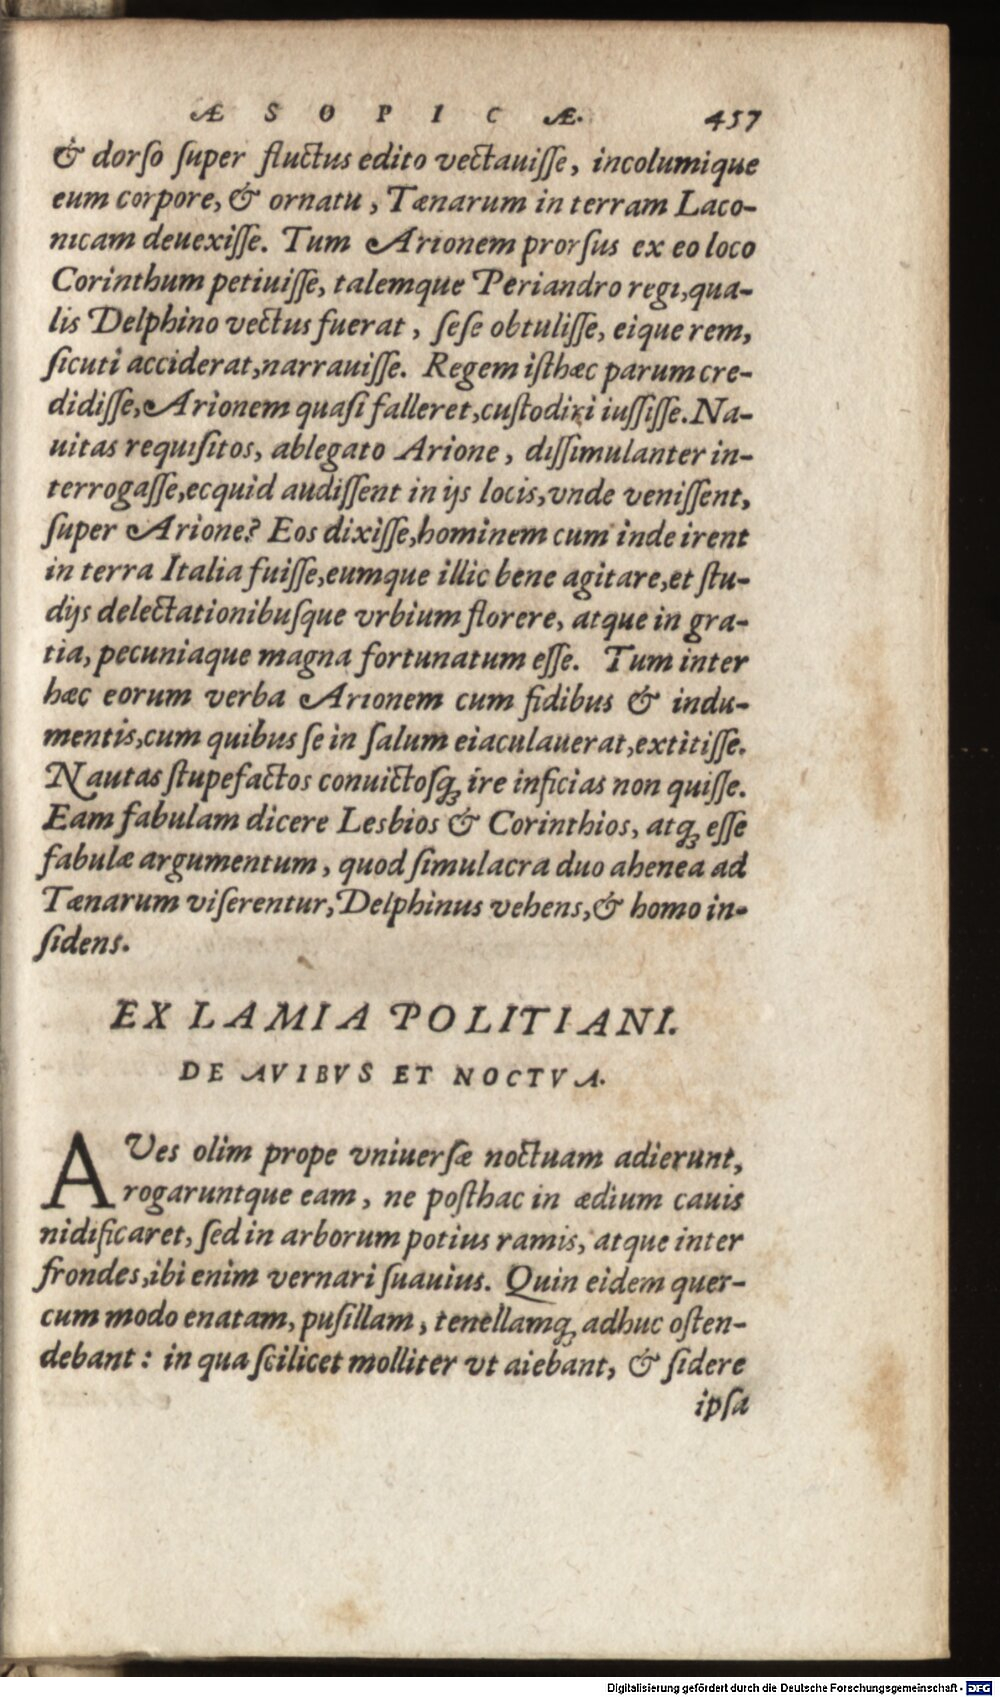 ÆSOPICÆ. 457
& dorſo ſuper fluctus edito vectauiſſe, incolumique
eum corpore, & ornatu, Tænarum in terram Laco-
nicam deuexiſſe. Tum Arionem prorſus ex eo loco
Corinthum petiuiſſe, talemque Periandro regi, qua-
lis Delphino vectus fuerat, ſeſe obtuliſſe, eique rem,
ſicuti acciderat, narrauiſſe. Regem iſthæc parum cre-
didiſſe, Arionem quaſi falleret, cuſtodiri iuſſiſſe. Na-
uitas requiſitos, ablegato Arione, diſſimulanter in-
terrogaſſe, ecquid audiſſent in ijs locis, vnde veniſſent,
ſuper Arione? Eos dixiſſe, hominem cum inde irent
in terra Italia fuiſſe, eumque illic bene agitare, et ſtu-
dijs delectationibuſque vrbium florere, atque in gra-
tia, pecuniaque magna fortunatum eſſe. Tum inter
hæc eorum verba Arionem cum fidibus & indu-
mentis, cum quibus ſe in ſalum eiaculauerat, extitiſſe.
Nautas ſtupefactos conuictoſq; ire inficias non quiſſe.
Eam fabulam dicere Lesbios & Corinthios, atq; eſſe
fabulæ argumentum, quod ſimulacra duo ahenea ad
Tænarum viſerentur, Delphinus vehens, & homo in-
ſidens.
EX LAMIA POLITIANI.
DE AVIBVS ET NOCTVA.
AVes olim prope vniuerſæ noctuam adierunt,
rogaruntque eam, ne poſthac in ædium cauis
nidificaret, ſed in arborum potius ramis, atque inter
frondes, ibi enim vernari ſuauius. Quin eidem quer-
cum modo enatam, puſillam, tenellamq; adhuc oſten-
debant: in qua ſcilicet molliter vt aiebant, & ſidere
ipſa
Digitalisierung gefördert durch die Deutsche Forschungsgemeinschaft - DFG